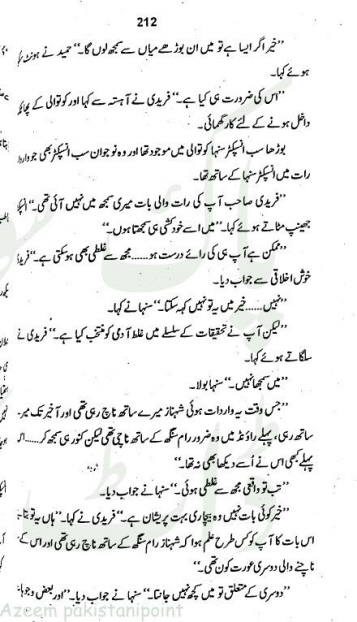 212
’’خیر اگر ایسا ہے تو میں ان بوڑھے میاں سے سمجھ لوں گا۔‘‘ حمید نے ہونٹ
ہوئے کہا۔
’’اس کی ضرورت ہی کیا ہے۔‘‘ فریدی نے آہستہ سے کہا اور کوتوالی کے پھاٹک
داخل ہونے کے لئے کار گھمائی۔
بوڑھا سب انسپکٹر سنہا کوتوالی میں موجود تھا اور وہ نوجوان سب انسپکٹر بھی جو
رات میں انسپکٹر سنہا کے ساتھ تھا۔
’’فریدی صاحب آپ کی رات والی بات میری سمجھ میں نہیں آئی تھی۔‘‘
جھینپ مٹاتے ہوئے کہا۔ ’’میں اسے خودکشی ہی سمجھتا ہوں۔‘‘
’’ممکن ہے آپ ہی کی رائے درست ہو......مجھ سے غلطی بھی ہوسکتی ہے۔‘‘
خوش اخلاقی سے جواب دیا۔
’’نہیں......خیر میں یہ تو نہیں کہہ سکتا۔‘‘ سنہا نے کہا۔
’’لیکن آپ نے تحقیقات کے سلسلے میں غلط آدمی کو منتخب کیا ہے۔‘‘ فریدی نے
سلگاتے ہوئے کہا۔
’’میں سمجھا نہیں۔‘‘ سنہا بولا۔
’’جس وقت یہ واردات ہوئی شہناز میرے ساتھ ناچ رہی تھی اور آخیر تک
ساتھ رہی، پہلے راؤنڈ میں وہ ضرور رام سنگھ کے ساتھ ناچی تھی لیکن کنور ہی سمجھ کر......
پہلے کبھی اس نے اُسے دیکھا بھی نہ تھا۔‘‘
’’تب تو واقعی مجھ سے غلطی ہوئی۔‘‘ سنہا نے جواب دیا۔
’’خیر کوئی بات نہیں وہ بیچاری بہت پریشان ہے۔‘‘ فریدی نے کہا۔ ’’ہاں یہ تو
اس بات کا آپ کو کس طرح علم ہوا کہ شہناز رام سنگھ کے ساتھ ناچ رہی تھی اور اس کے
ناچنے والی دوسری عورت کون تھی۔‘‘
’’دوسری کے متعلق تو میں کچھ نہیں جانتا۔‘‘ سنہا نے جواب دیا۔ ’’اور بعض
Azeem pakistanipoint